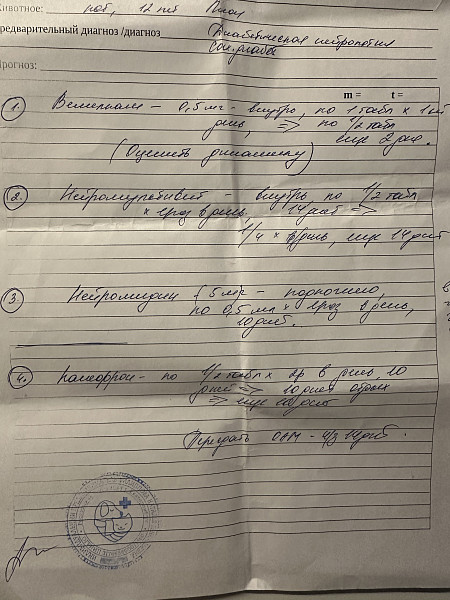 Животное: кот, 12 лет
редварительный диагноз /диагноз Диабетическая нейропатия
Сах. диабет
Прогноз:
m = t =
1. - 0,5 мг - внутрь, по 1 табл × 1
день, => по 1/2 табл
еще 2 дня.
(Оценить динамику)
2. Нейромультивит - внутрь по 1/2 табл
× 1 раз в день. 14 дней =>
1/4 × в день, еще 14 дней
3. Нейромидин 5 мг - подкожно,
по 0,5 мл × 1 раз в день,
10 дней.
4. Канефрон - по 1/2 табл × 2р в день, 10
дней => 10 дней отдых
=> еще 10 дней
Пересдать ОАМ - ч/з 14 дней.